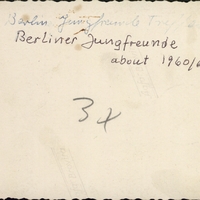 Berlin Jungfreunde
Berliner Jungfreunde
about 1960/6
3x